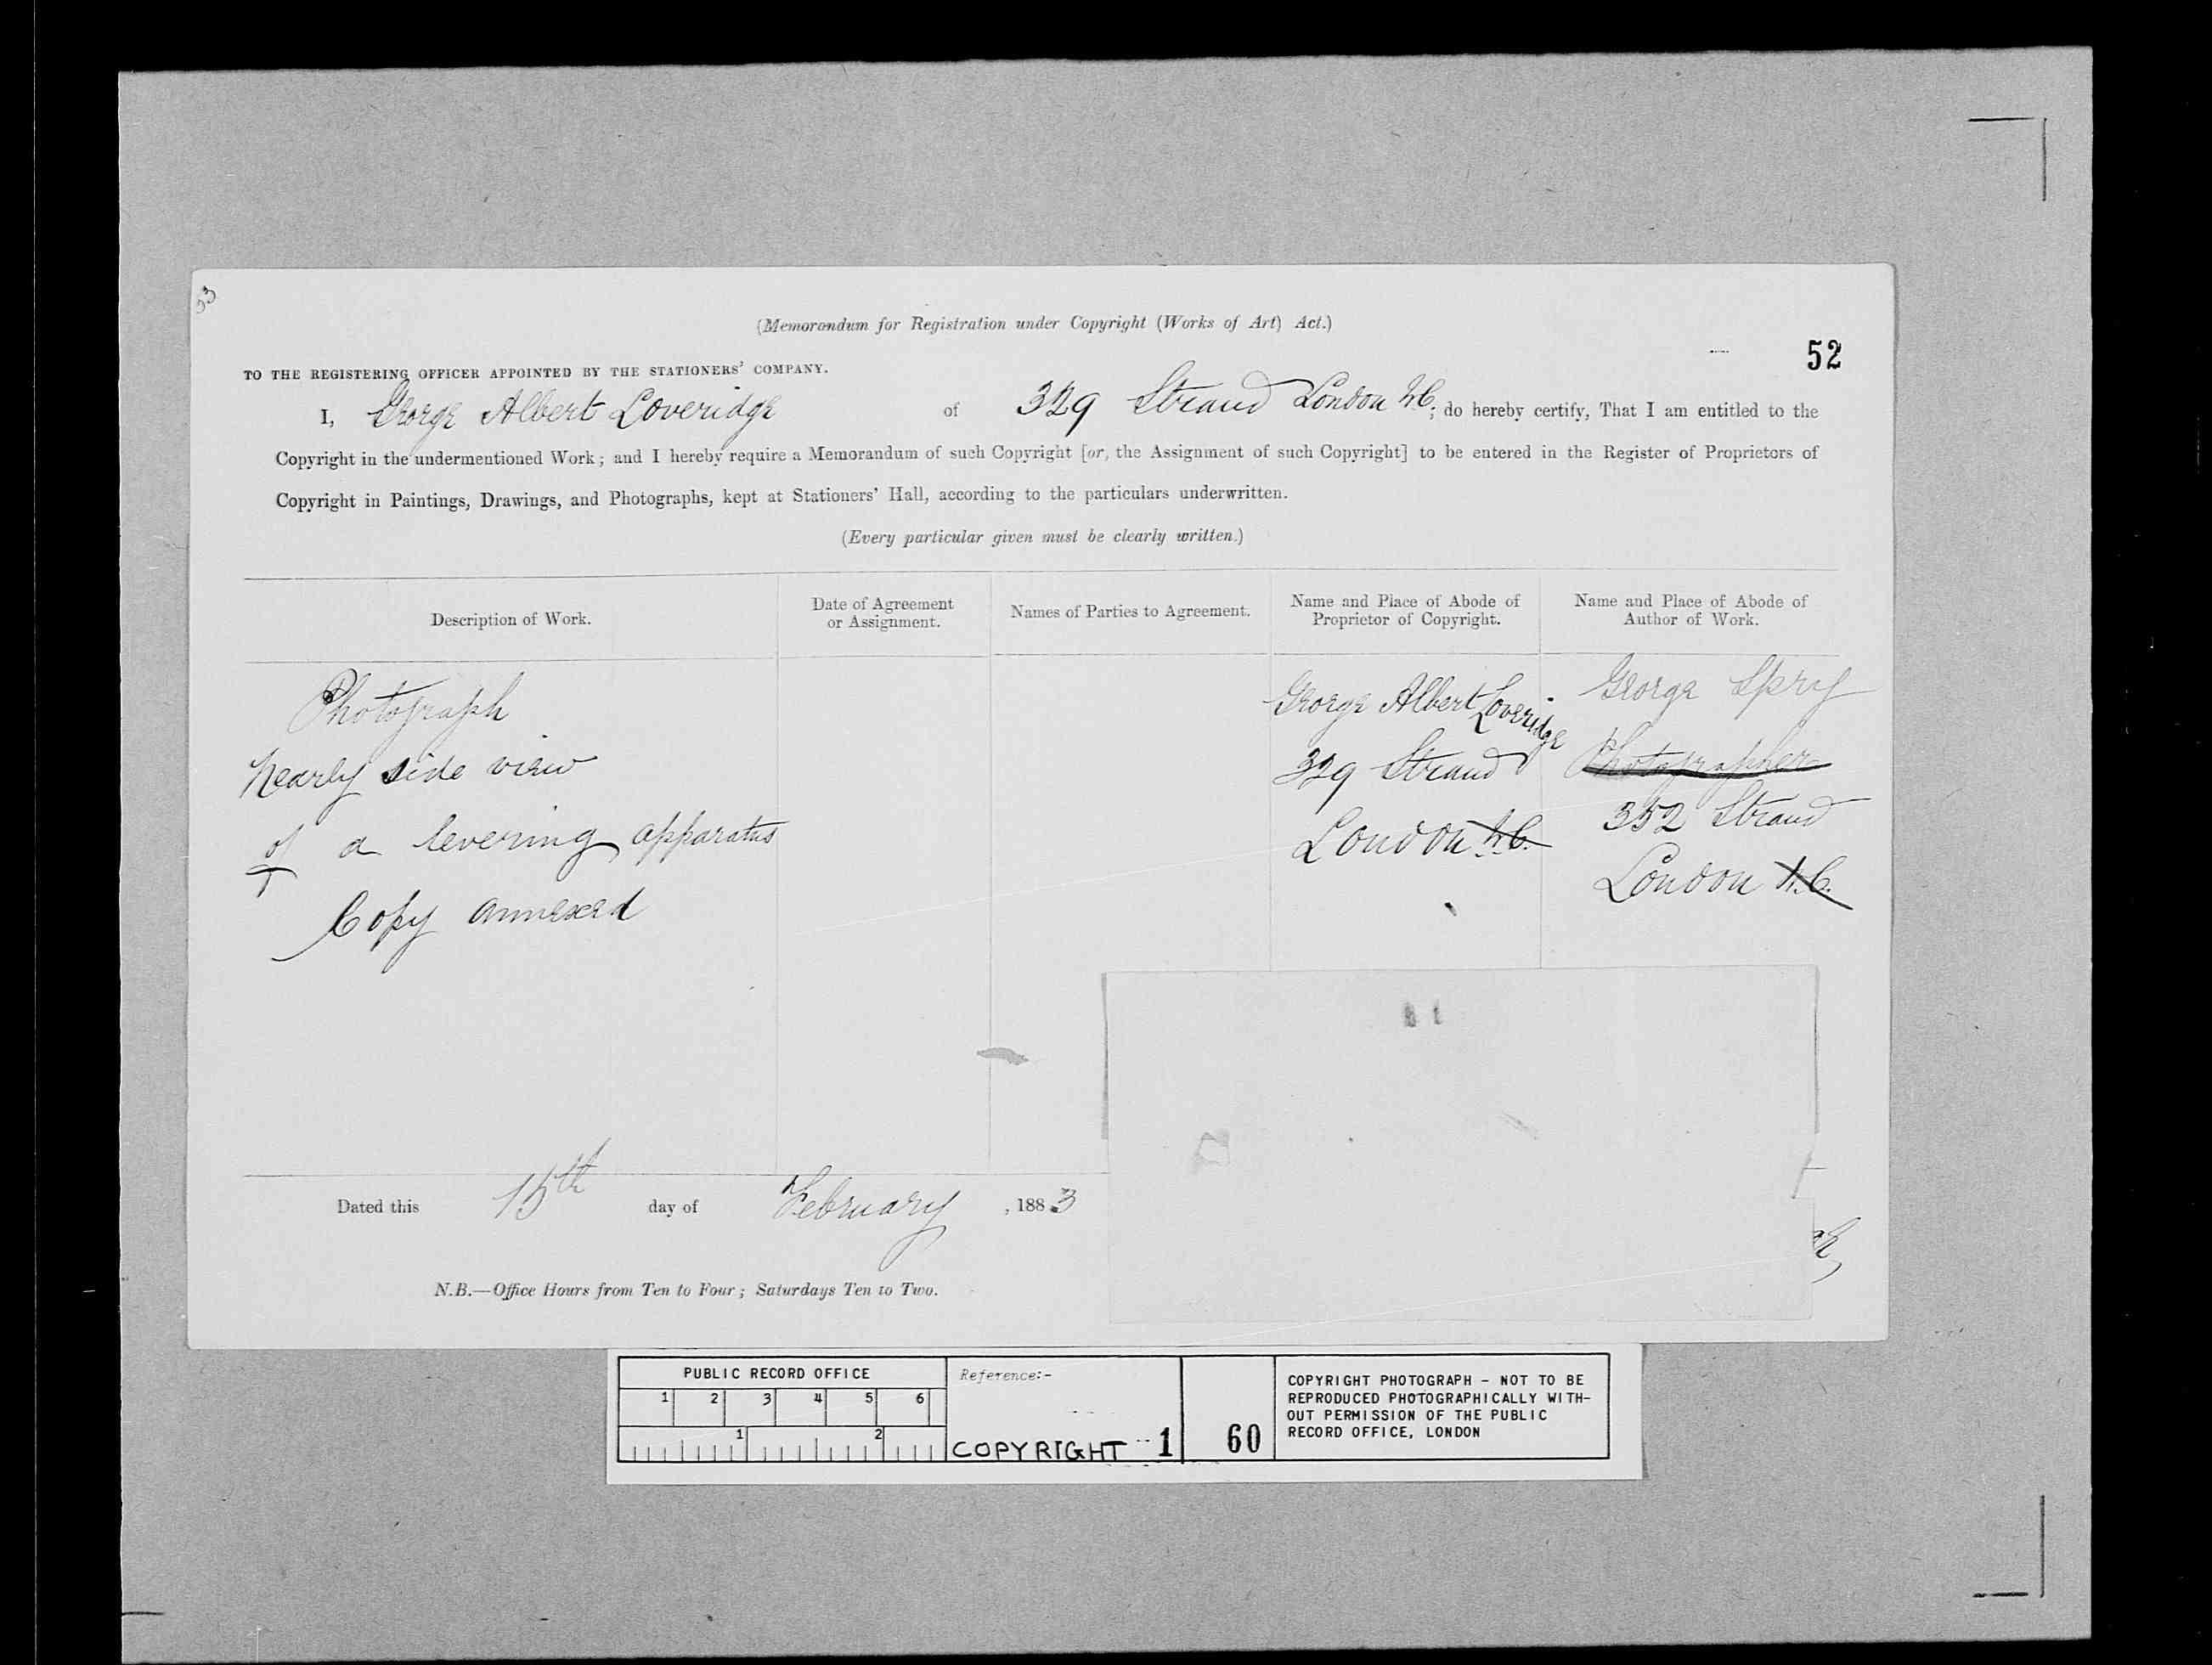 53
(Memorandum for Registration under Copyright (Works of Art) Act.)
52
TO THE REGISTERING OFFICER APPOINTED BY THE STATIONERS' COMPANY.
I, George Albert Loveridge of 329 Strand London W.C.; do hereby certify, That I am entitled to the
Copyright in the undermentioned Work; and I hereby require a Memorandum of such Copyright [or, the Assignment of such Copyright] to be entered in the Register of Proprietors of
Copyright in Paintings, Drawings, and Photographs, kept at Stationers' Hall, according to the particulars underwritten.
(Every particular given must be clearly written.)
Description of Work.
Date of Agreement
or Assignment.
Names of Parties to Agreement.
Name and Place of Abode of
Proprietor of Copyright.
Name and Place of Abode of
Author of Work.
Photograph
Nearly side view
of a levering apparatus
Copy annexed
George Albert Loveridge
329 Strand
London W.C.
George Spry
Photographer
352 Strand
London W.C.
Dated this 15th day of February, 1883
N.B.—Office Hours from Ten to Four; Saturdays Ten to Two.
PUBLIC RECORD OFFICE
1 2 3 4 5 6
1 2
Reference:-
COPYRIGHT 1
60
COPYRIGHT PHOTOGRAPH - NOT TO BE
REPRODUCED PHOTOGRAPHICALLY WITH-
OUT PERMISSION OF THE PUBLIC
RECORD OFFICE, LONDON